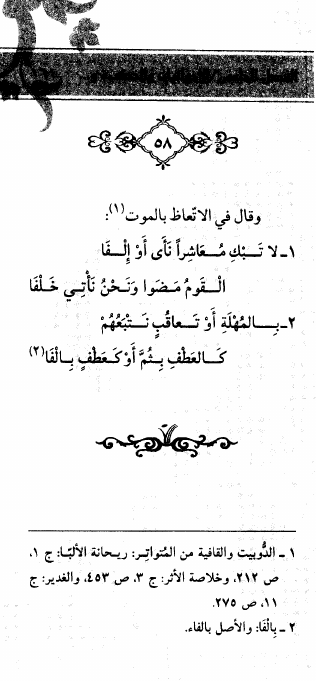 ٥٨
وقال في الاتّعاظ بالموت(١):
١ـ لا تَـبْكِ مُـعَاشِراً نَأَى أَوْ إِلْـفَا
الْـقَومُ مَـضَوا وَنَـحْنُ نَأْتِـي خَـلْفَا
٢ـ بِـالمُهْلَةِ أَوْ تَـعاقُبٍ نَـتْبَعُهُمْ
كَـالعَطْفِ بِـثُمَّ أَوْ كَـعَطْفٍ بِـالْفَا(٢)
١ ـ الدُّوبيت والقافية من المُتواتِـر: ريحانة الألبّـا: ج ١،
ص ٢١٢، وخلاصة الأثر: ج ٣، ص ٤٥٣، والغدير: ج
١١، ص ٢٧٥.
٢ ـ بِالْفَا: والأصل بالفاء.